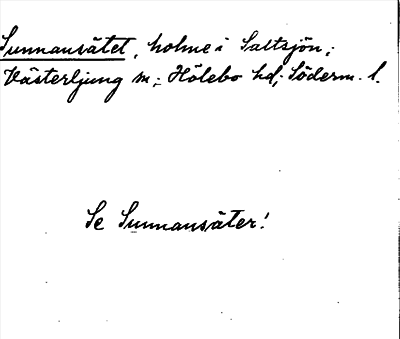 Sunnansätet, holme i Saltsjön;
Västerljung m; Hölebo hd; Söderm. l.
Se Sunnansäter!